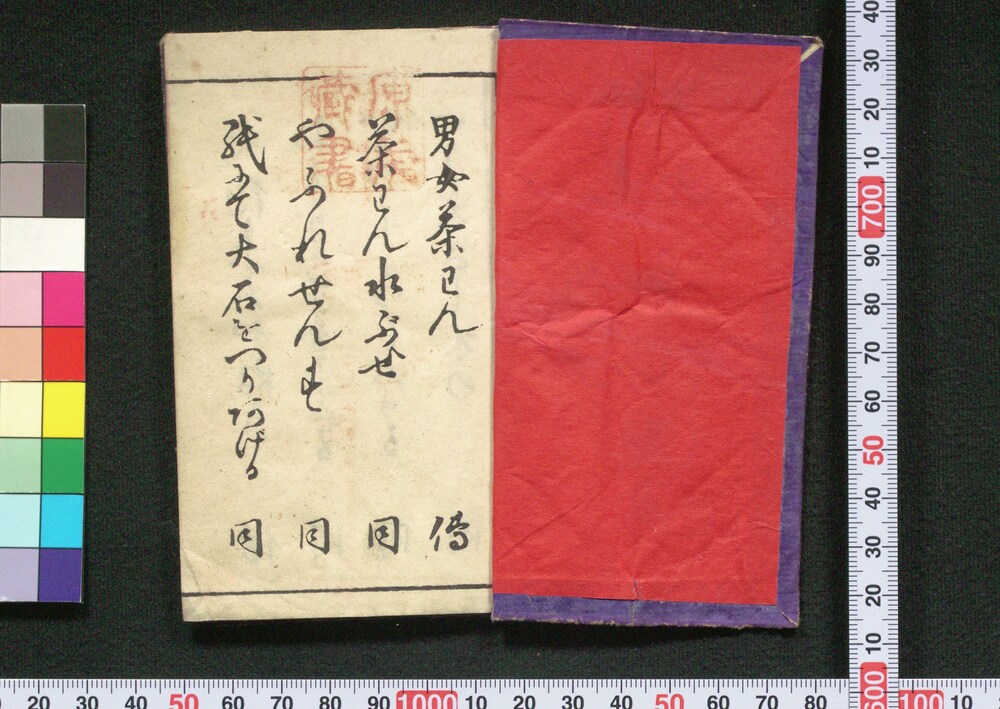 男女茶わん 傳
茶わん水ぶせ 同
やふれせんす 同
紙にて大石をつりあげる 同
蔵書
40 30 20 10 700 90 80 70 60 50 40 30 20 10 600
20 30 40 50 60 70 80 90 1000 10 20 30 40 50 60 70 80 100 10